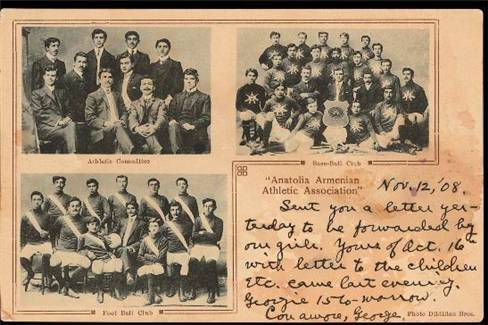 Athletic Committee
Base-Ball Club
"Anatolia Armenian
Athletic Association"
Nov. 12, '08.
Sent you a letter yes-
terday to be forwarded by
our girls. Yours of Oct. 16th
with letter to the children
etc. came last evening.
Georgie 15 to-morrow.
George.
Foot Ball Club
Photo Dildilian Bros.